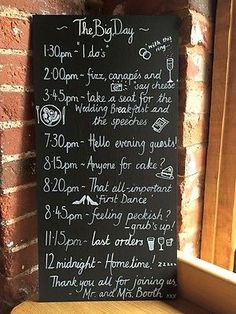 ~ The Big Day ~
1:30pm - "I do's"
with this ring
2:00pm - fizz, canapés and
'say cheese'
3:45pm - take a seat for the
Wedding Breakfast and
the speeches
7:30pm - Hello evening guests!
8:15pm - Anyone for cake?
8:20pm - That all-important
'First Dance'
8:45pm - feeling peckish?
- grub's up!
11:15pm - last orders
12 midnight - Hometime! zzzz
Thank you all for joining us,
Mr. and Mrs. Booth xxx